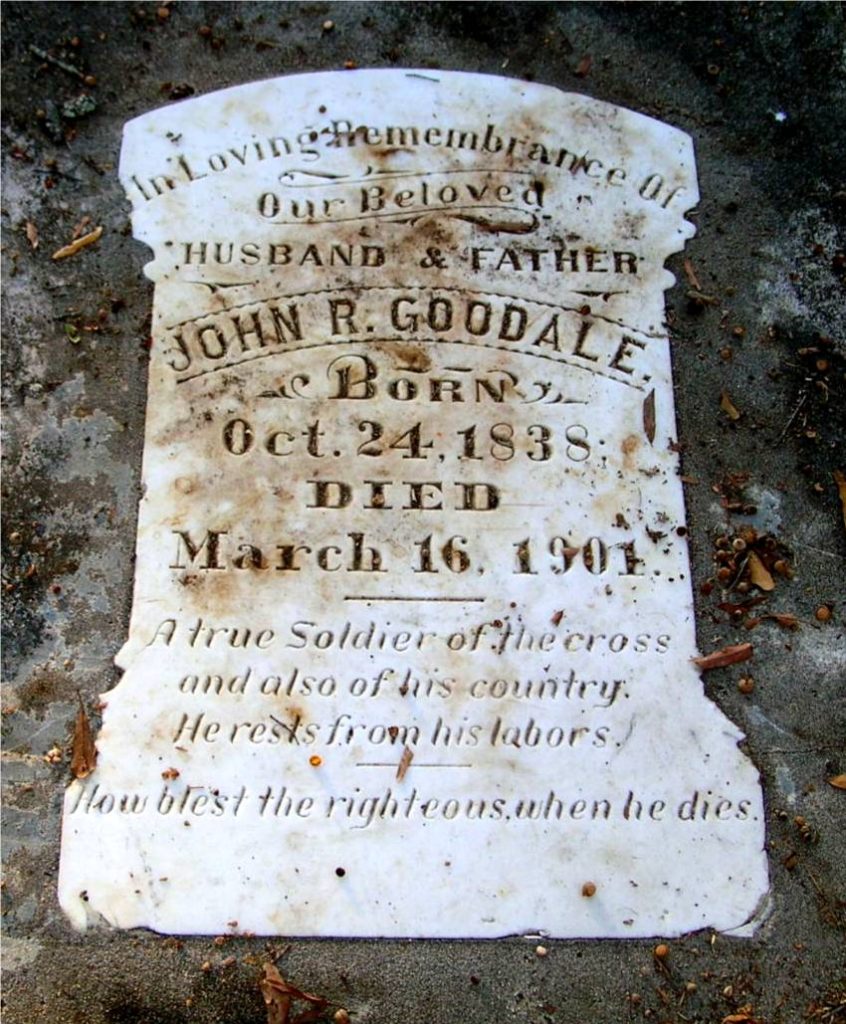 In Loving Remembrance Of
Our Beloved
HUSBAND & FATHER
JOHN R. GOODALE.
BORN
Oct. 24, 1838;
DIED
March 16, 1901.
A true Soldier of the cross
and also of his country.
He rests from his labors.
How blest the righteous, when he dies.